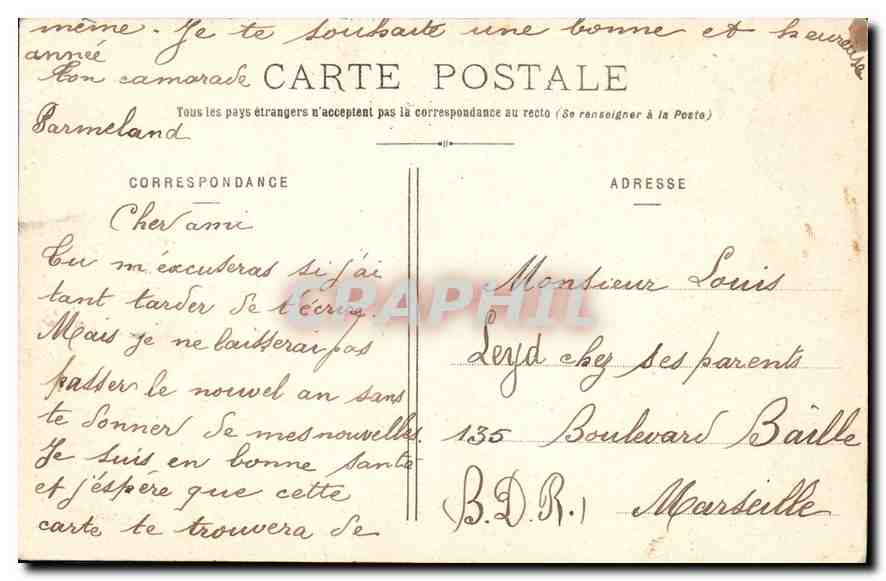 même. Je te souhaite une bonne et heureuse
année
Ton camarade
CARTE POSTALE
Tous les pays étrangers n'acceptent pas la correspondance au recto (Se renseigner à la Poste)
Parmeland
CORRESPONDANCE
Cher ami
Tu m'éxcuseras si j'ai
tant tarder de t'écrire.
Mais je ne laisserai pas
passer le nouvel an sans
te donner de mes nouvelles.
Je suis en bonne santé
et j'éspère que cette
carte te trouvera de
ADRESSE
Monsieur Louis
Leyd chez ses parents
135 Boulevard Baille
(B.D.R.) Marseille
CPAPHIL